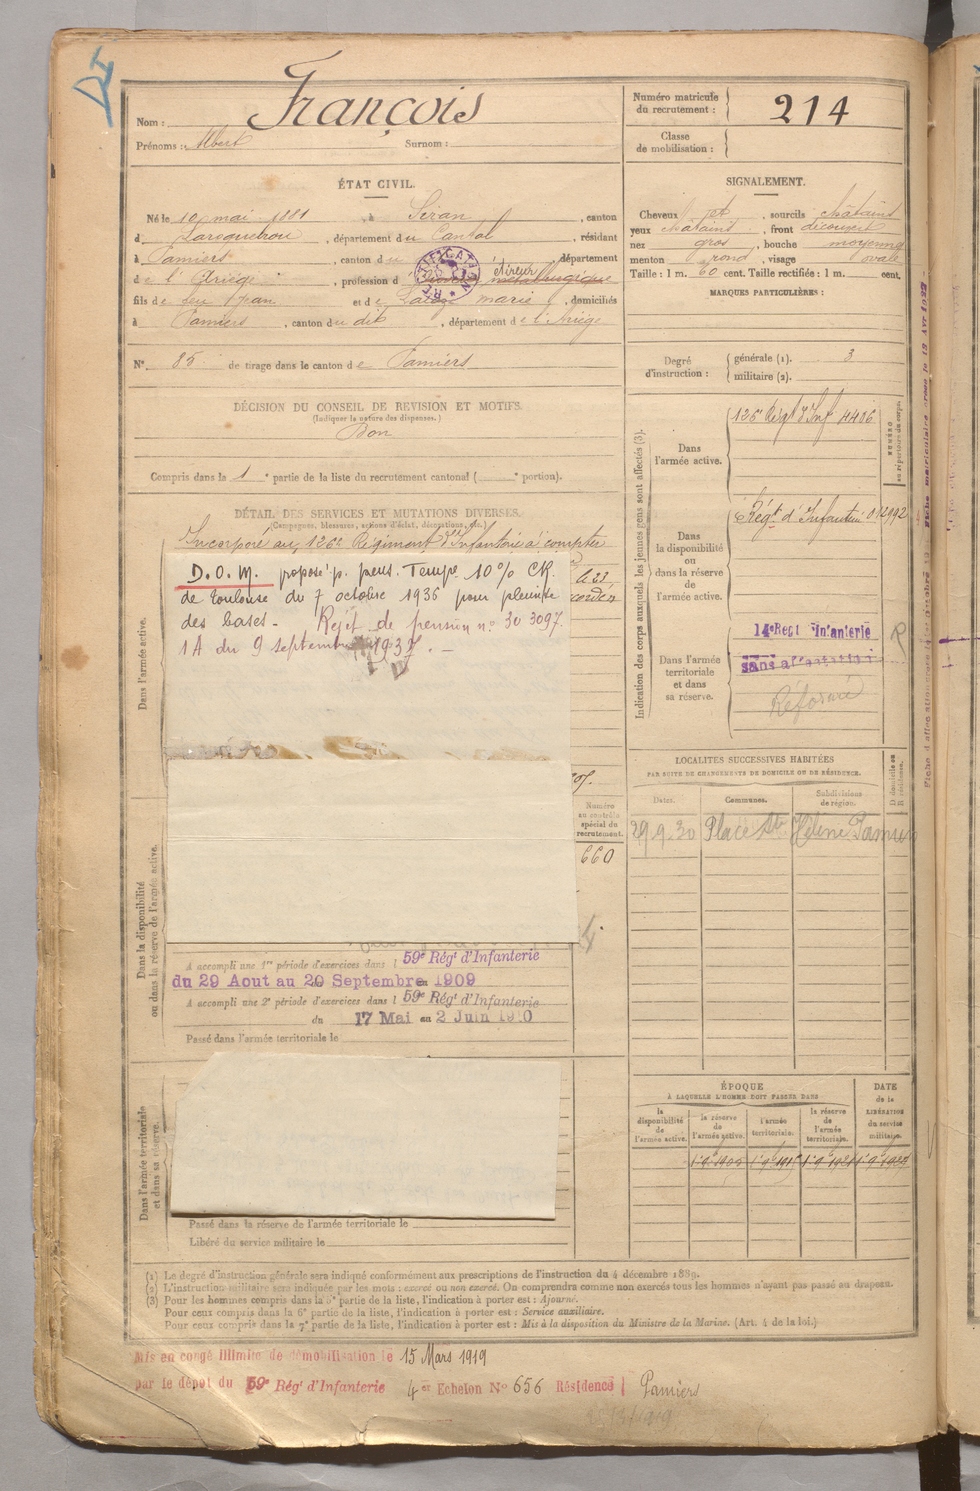 Nom : François
Prénoms : Albert Surnom :
Numéro matricule du recrutement : 214
Classe de mobilisation :
ÉTAT CIVIL.
Né le 10 mai 1881, à Siran, canton
de Laroquebrou, département du Cantal, résidant
à Pamiers, canton du dit, département
de l'Ariège, profession d
fils de feu Jean et de marie, domiciliés
à Pamiers, canton du dit, département de l'Ariège
N° 85 de tirage dans le canton de Pamiers
SIGNALEMENT.
Cheveux et, sourcils châtains
yeux châtains, front découvert
nez gros, bouche moyenne
menton rond, visage ovale
Taille : 1 m. 60 cent. Taille rectifiée : 1 m. cent.
MARQUES PARTICULIÈRES :
Degré d'instruction : générale (1). 3
militaire (2).
DÉCISION DU CONSEIL DE REVISION ET MOTIFS.
(Indiquer la nature des dispenses.)
Bon
Compris dans la 1e partie de la liste du recrutement cantonal ( e portion).
DÉTAIL DES SERVICES ET MUTATIONS DIVERSES.
(Campagnes, blessures, actions d'éclat, décorations, etc.)
Incorporé au 126e Régiment d'Infanterie à compter
D.O.M. proposé p. pens. Tempre 10% CR.
de Toulouse du 7 octobre 1936 pour pleurite
des bases - Rejet de pension n° 30 3097.
1A du 9 septembre 1937. -
Dans l'armée active.
Dans la disponibilité ou dans la réserve de l'armée active.
Numéro au contrôle spécial du recrutement.
660
A accompli une 1re période d'exercices dans l 59e Régt d'Infanterie
du 29 Aout au 20 Septembre 1909
A accompli une 2e période d'exercices dans l 59e Régt d'Infanterie
du 17 Mai au 2 Juin 1910
Passé dans l'armée territoriale le
Dans l'armée territoriale et dans sa réserve.
Passé dans la réserve de l'armée territoriale le
Libéré du service militaire le
Indication des corps auxquels les jeunes gens sont affectés (3).
Dans l'armée active.
126e Régt d'Inf 4406
NUMÉRO au répertoire du corps.
Dans la disponibilité ou dans la réserve de l'armée active.
Régt d'Infanterie 012192
Dans l'armée territoriale et dans sa réserve.
14e Regt Infanterie
sans affectation
Réformé
R
LOCALITÉS SUCCESSIVES HABITÉES
PAR SUITE DE CHANGEMENTS DE DOMICILE OU DE RÉSIDENCE.
Dates. Communes. Subdivisions de région. D domicile ou R résidence.
29.9.30 Place Ste Hélène Pamiers
ÉPOQUE
À LAQUELLE L'HOMME DOIT PASSER DANS
la disponibilité de l'armée active. la réserve de l'armée active. l'armée territoriale. la réserve de l'armée territoriale. DATE de la LIBÉRATION du service militaire.
(1) Le degré d'instruction générale sera indiqué conformément aux prescriptions de l'instruction du 4 décembre 1889.
(2) L'instruction militaire sera indiquée par les mots : exercé ou non exercé. On comprendra comme non exercés tous les hommes n'ayant pas passé au drapeau.
(3) Pour les hommes compris dans la 5e partie de la liste, l'indication à porter est : Ajourné.
Pour ceux compris dans la 6e partie de la liste, l'indication à porter est : Service auxiliaire.
Pour ceux compris dans la 7e partie de la liste, l'indication à porter est : Mis à la disposition du Ministre de la Marine. (Art. 4 de la loi.)
Mis en congé illimité de démobilisation le 15 Mars 1919
par le dépôt du 59e Rég' d'Infanterie 4er Echelon N° 656 Résidence Pamiers